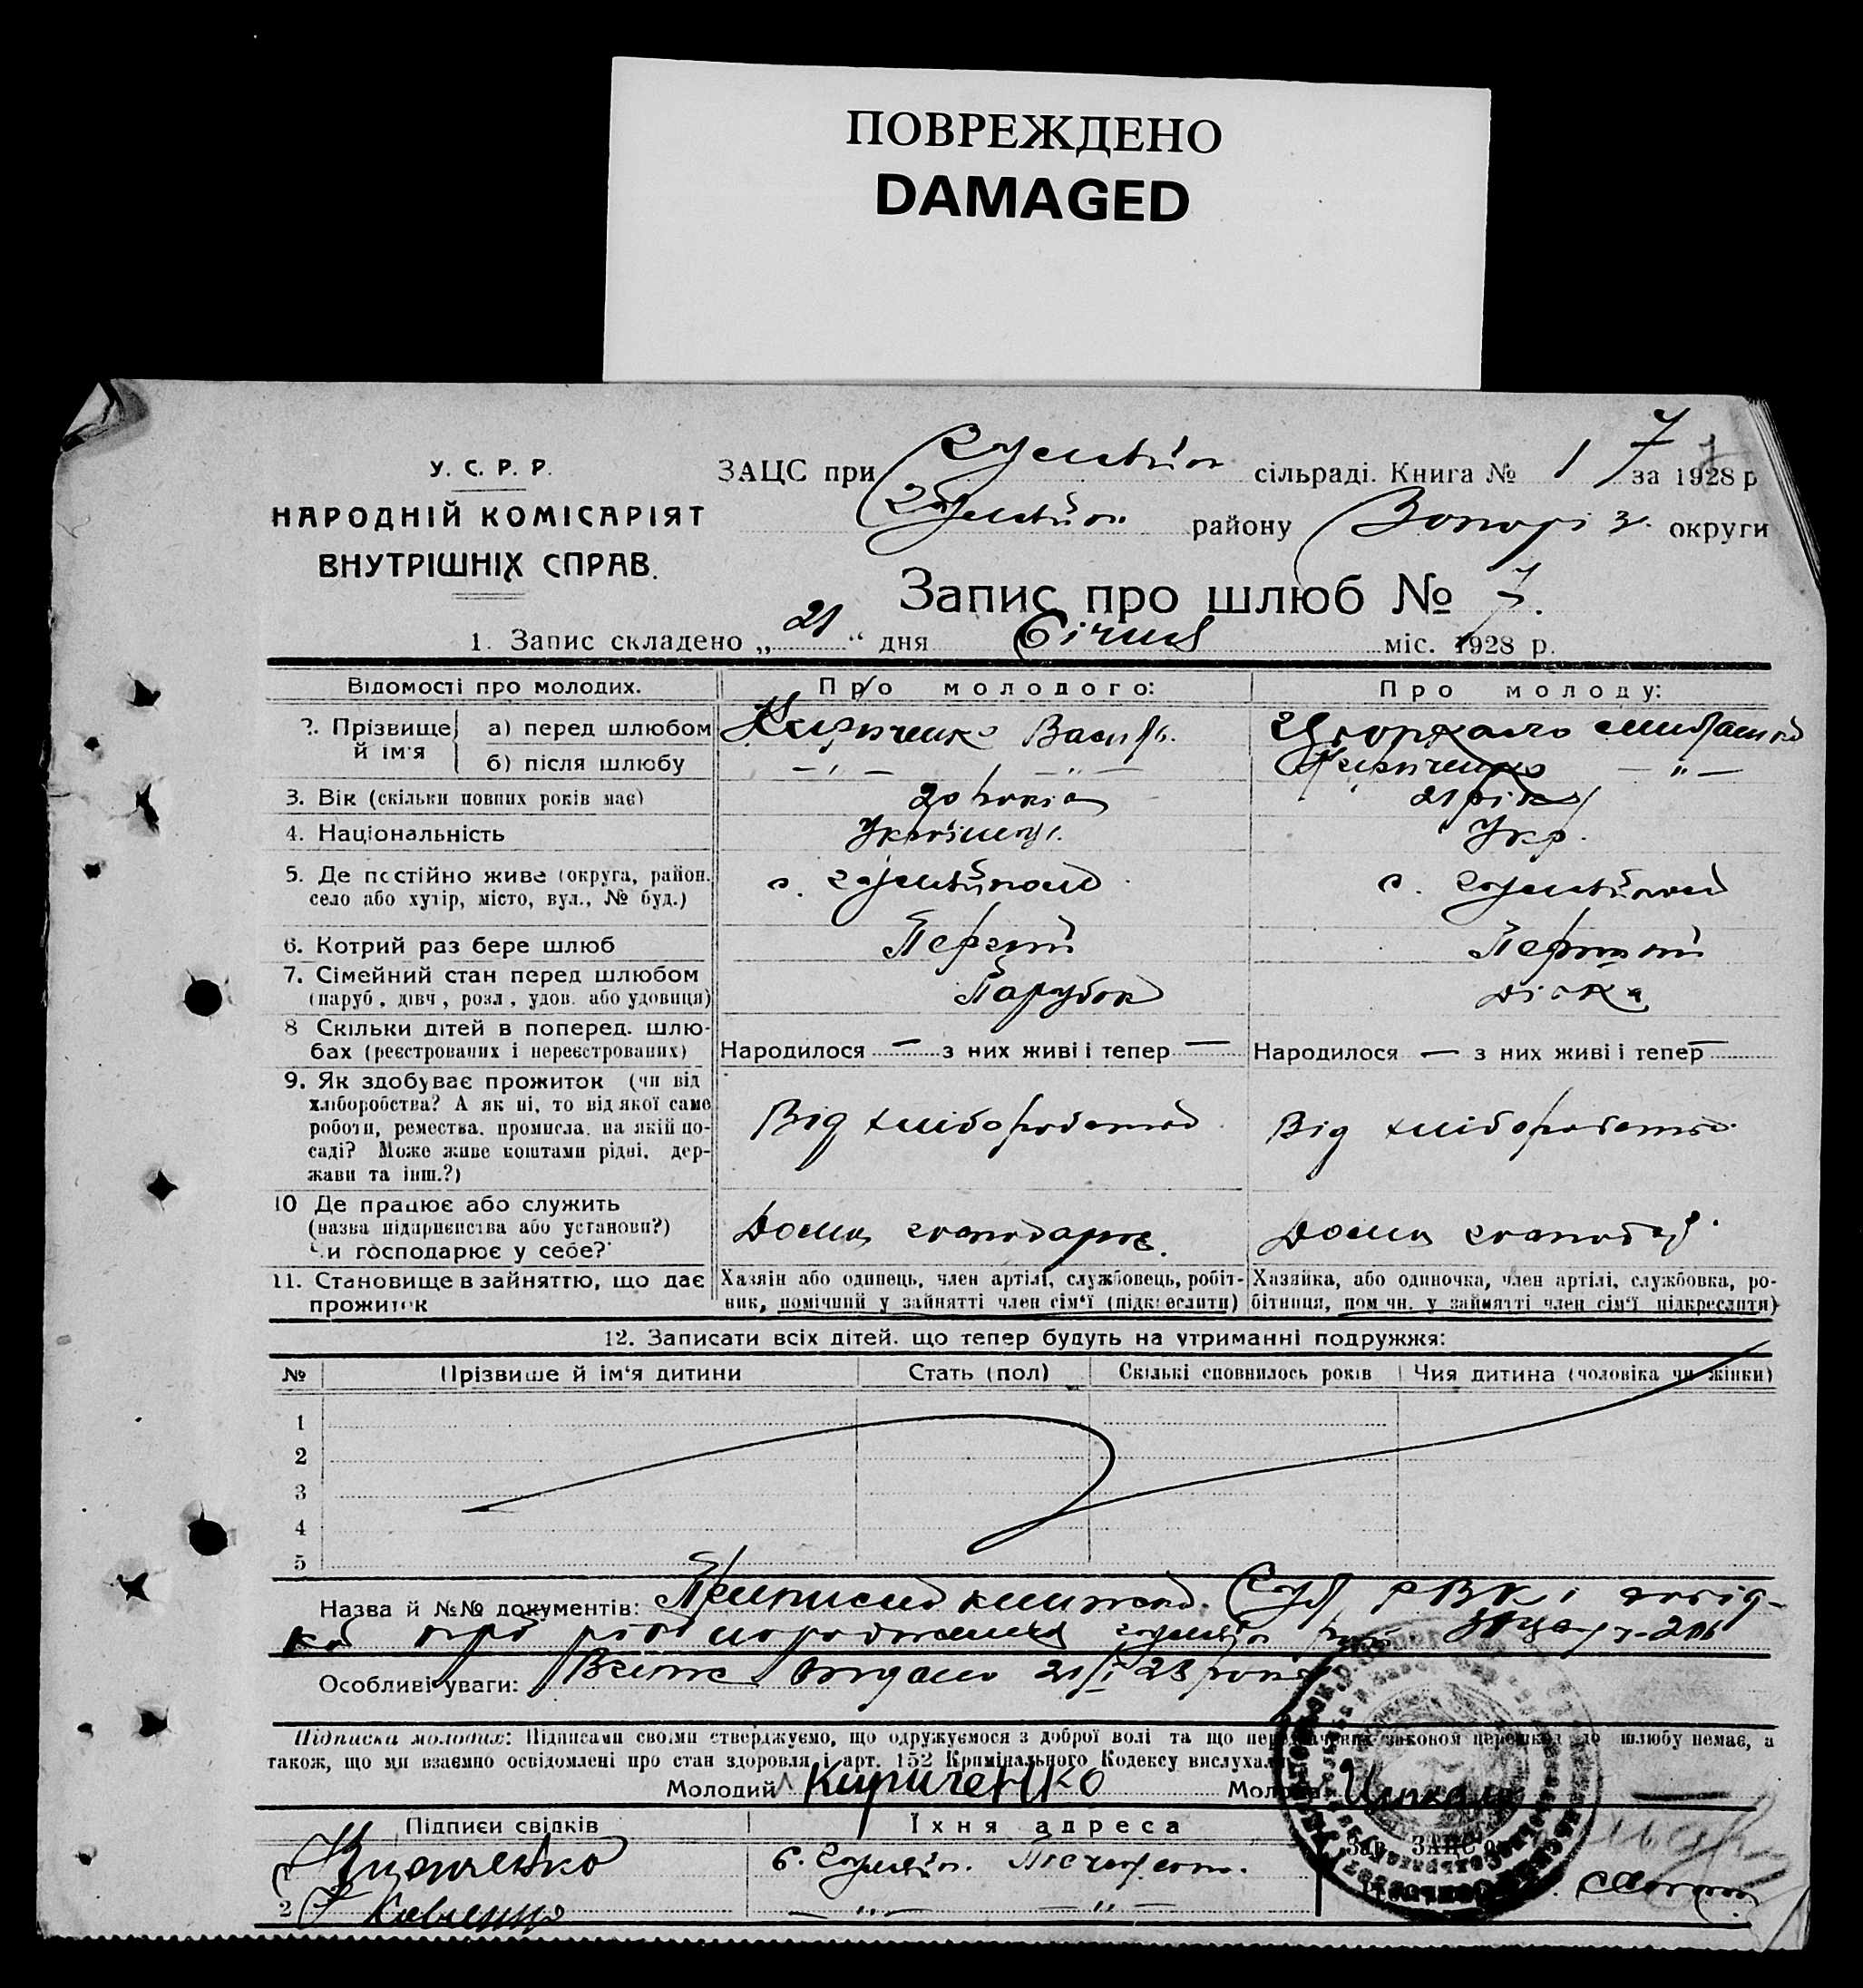 ПОВРЕЖДЕНО
DAMAGED
У. С. Р. Р.
НАРОДНІЙ КОМІСАРІЯТ
ВНУТРІШНІХ СПРАВ.
ЗАЦС при сільраді. Книга № 1 за 1928 р
району Запоріз. округи
Запис про шлюб № 7.
1. Запис складено „21“ дня Січня міс. 1928 р.
Відомості про молодих. Про молодого: Про молоду:
2. Прізвище й ім'я а) перед шлюбом Кириченко Василь.
б) після шлюбу — „ — — „ — Кириченко — „ —
3. Вік (скільки повних років має) 20 років 21 рік
4. Національність Українец. Укр.
5. Де постійно живе (округа, район, село або хутір, місто, вул., № буд.) с. с.
6. Котрий раз бере шлюб Перший Перший
7. Сімейний стан перед шлюбом (паруб., дівч., розл., удов. або удовиця) Парубок Дівка
8 Скільки дітей в поперед. шлюбах (реєстрованих і нереєстрованих) Народилося — з них живі і тепер — Народилося — з них живі і тепер —
9. Як здобуває прожиток (чи від хліборобства? А як ні, то від якої саме роботи, ремества, промисла, на якій посаді? Може живе коштами рідні, держави та інш.?) Від хліборобства Від хліборобства
10 Де працює або служить (назва підприємства або установи?) Чи господарює у себе? Дома господарює. Дома господар.
11. Становище в зайняттю, що дає прожиток Хазяїн або одинець, член артілі, службовець, робітник, помічний у зайнятті член сім'ї (підкреслити) Хазяйка, або одиночка, член артілі, службовка, робітниця, пом чн. у зайнятті член сім'ї підкреслити)
12. Записати всіх дітей, що тепер будуть на утриманні подружжя:
№ Прізвище й ім'я дитини Стать (пол) Скількі сповнилось років Чия дитина (чоловіка чи жінки)
1
2
3
4
5
Назва й №№ документів: Приписна книжка. РВК і довід-
ка про
Особливі уваги: Витяг видано 21/I 28 року
Підписка молодих: Підписами своїми стверджуємо, що одружуємося з доброї волі та що передбачених законом перешкод до шлюбу немає, а
також, що ми взаємно освідомлені про стан здоровля і арт. 152 Кримінального Кодексу вислухали.
Молодий Кириченко Молода
Підписи свідків Їхня адреса
1 с.
Зав. ЗАЦС'ом
2 — „ — — „ —